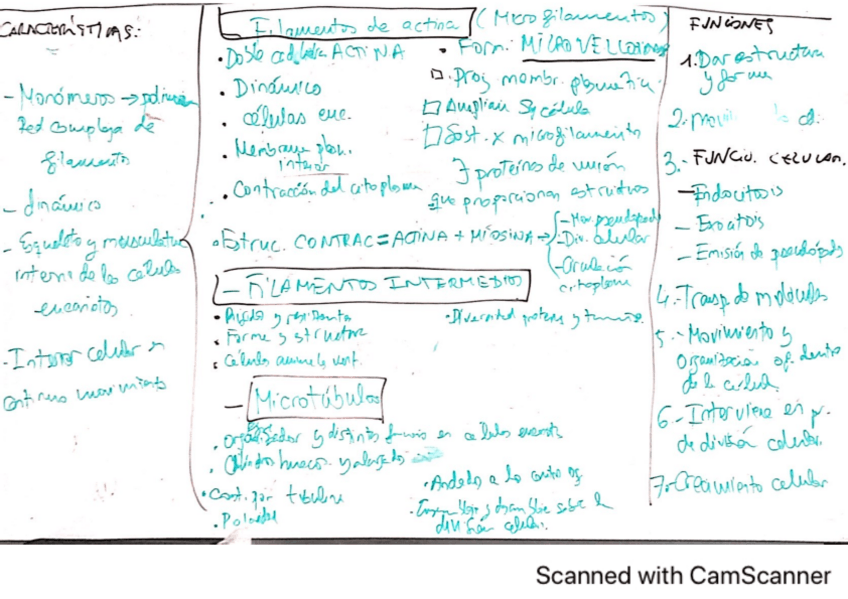 CARACTERÍSTICAS:
- Monómeros →
Red compleja de
filamentos
- dinámico
- Esqueleto y musculatura
interna de las células
eucariotas
- Interior celular en
continuo movimiento
Filamentos de actina (Microfilamentos)
• Doble cadena ACTINA
• Dinámico
• células euc.
• Membrana plasm.
interior
• Contracción del citoplasma
• Form: MICROVELLOSIDADES
Proy. membr. plasmática
Ampliar Sf célula
Sost. x microfilamento
7 proteínas de unión
que proporcionan estructura
• Estruc. CONTRAC = ACTINA + MIOSINA →
- Mov. pseudópodo
- Div. celular
- Circulación
citoplasma
- FILAMENTOS INTERMEDIOS
• Rígida y resistente
• Forma y structura
• Células animales vert.
• Diversidad proteína y tamaño.
- Microtúbulos
• Organizador y distintas func. en células eucariotas
• Cilindros huecos y alargados
• Const. por tubulina
• Polaridad
• Ensamblar y desensamblar sobre la
división celular.
FUNCIONES
1. Dar estructura
y forma
2.
3.- FUNCIO. CELULAR.
- Endocitosis
- Exocitosis
- Emisión de pseudópodos
4.- Transp. de moléculas
5.- Movimiento y
Organización og. dentro
de la célula
6.- Interviene en p.
de división celular.
7.- Crecimiento celular
Scanned with CamScanner